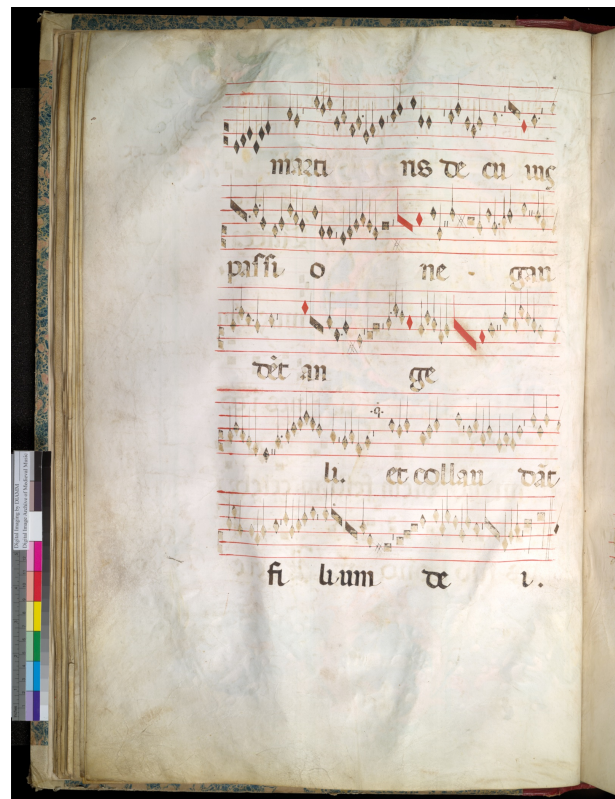 marti ris de cu ius
passi o ne . gau
dēt an ge
.q.
li. et collau dāt
fi li um de i.
Digital Imaging by DIAMM
Digital Image Archive of Medieval Music